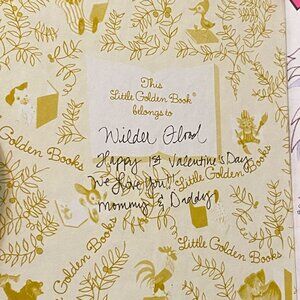 This
Little Golden Book®
belongs to
Wilder
Happy 1st Valentine's Day
We love you!!
Mommy & Daddy
Golden Books
Little Golden Books
Golden Books
Little Golden Books
Golden Books